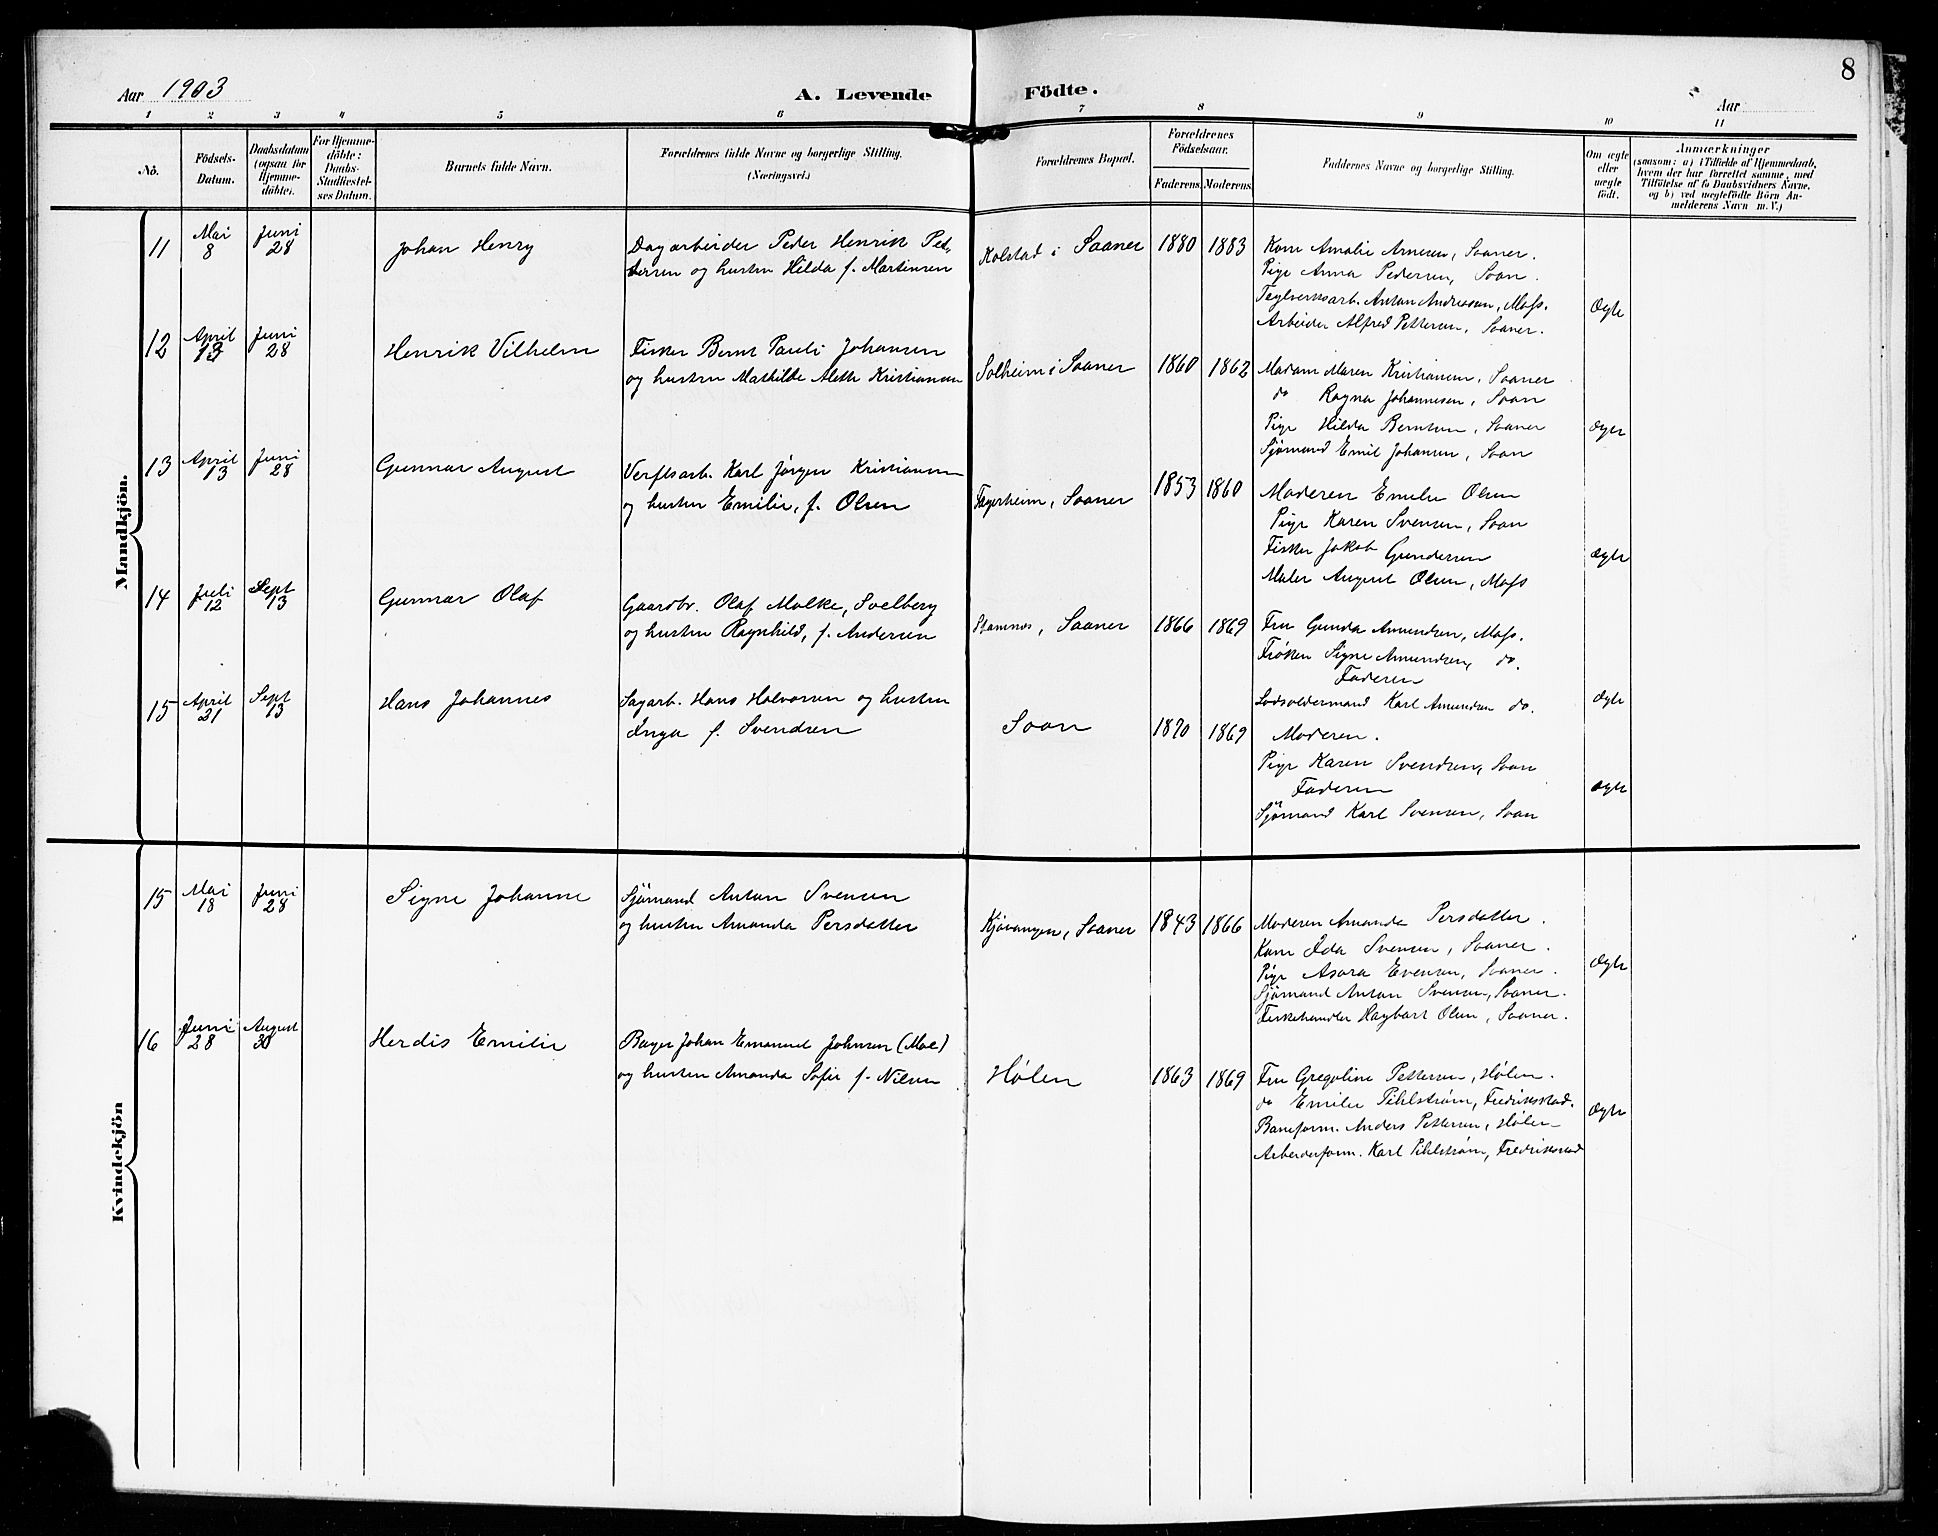 Aar 1903
A. Levende Födte.
Aar
8
1 2 3 4 5 6 7 8 9 10 11
No.
Födsels-
Datum.
Daabsdatum
(ogsaa for
Hjemme-
döbte).
For Hjemme-
döbte:
Daabs-
Stadfæstel-
ses Datum.
Barnets fulde Navn.
Forældrenes fulde Navne og borgerlige Stilling.
(Næringsvei.)
Forældrenes Bopæl.
Forældrenes
Födselsaar.
Faderens. Moderens.
Faddernes Navne og borgerlige Stilling.
Om ægte
eller
uægte
födt.
Anmærkninger
(saasom: a) i Tilfælde af Hjemmedaab,
hvem der har forrettet samme, med
Tilföielse af to Daabsvidners Navne,
og b) ved uægtefödte Börn An-
melderens Navn m. V.)
Mandkjön.
11 Mai 8 Juni 28 Johan Henry
Dagarbeider Peder Henrik Ped-
ersen og hustru Hilda f. Martinsen
Kolstad i Saaner 1880 1883
Kone Amalie Arnesen, Saaner.
Pige Anna Pedersen, Soon.
Teglverksarb. Anton Andreasen, Moss.
Arbeider Alfred Pettersen, Saaner.
Ægte
12 April 13 Juni 28 Henrik Vilhelm
Fisker Bernt Pauli Johansen
og hustru Mathilde Aleth Kristiansen
Solheim i Saaner 1860 1862
Madam Maren Kristiansen, Saaner
do Ragna Johannesen, Soon
Pige Hilda Berntsen, Saaner
Sjømand Emil Johansen, Soon
Ægte
13 April 13 Juni 28 Gunnar August
Verftsarb. Karl Jørgen Kristiansen
og hustru Emilie, f. Olsen
Fagerheim, Saaner 1853 1860
Moderen Emilie Olsen
Pige Karen Svensen, Soon
Fisker Jakob Gundersen
Maler August Olsen, Moss
Ægte
14 Juli 12 Sept 13 Gunnar Olaf
Gaardbr. Olaf Molke, Svelberg
og hustru Ragnhild, f. Andersen
Stamnes, Saaner 1866 1869
Fru Gunda Amundsen, Moss.
Frøken Signe Amundsen, do.
Faderen
Lodsoldermand Karl Amundsen do.
Ægte
15 April 21 Sept 13 Hans Johannes
Sagarb. Hans Halvorsen og hustru
Inga f. Svendsen
Soon 1870 1869
Moderen.
Pige Karen Svendsen, Soon
Faderen
Sjømand Karl Svensen, Soon
Ægte
Kvindekjön
15 Mai 18 Juni 28 Signe Johanne
Sjømand Anton Svensen
og hustru Amanda Persdatter
Kjøvangen, Saaner 1843 1866
Moderen Amanda Persdatter.
Kone Ida Svensen, Saaner.
Pige Asora Evensen, Saaner.
Sjømand Anton Svensen, Saaner.
Fiskehandler Hagbart Olsen, Saaner.
Ægte
16 Juni 28 August 30 Herdis Emilie
Bager Johan Emanuel Johnsen (Moe)
og hustru Amanda Sofie f. Nilsen
Hølen 1863 1869
Fru Gregoline Pettersen, Hølen.
do Emilie Pihlstrøm, Fredriksstad.
Baneform. Anders Pettersen, Hølen
Arbeiderform. Karl Pihlstrøm, Fredriksstad
Ægte